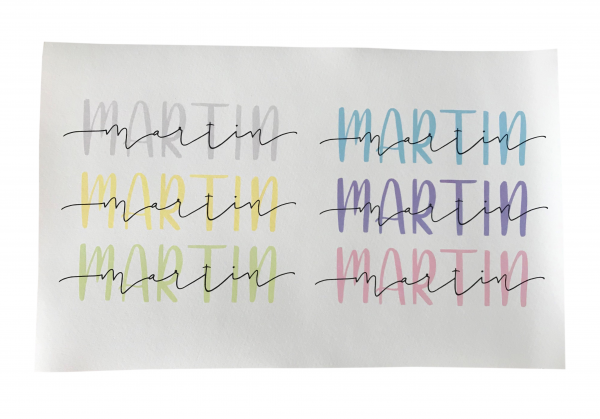 MARTIN
martin
MARTIN
martin
MARTIN
martin
MARTIN
martin
MARTIN
martin
MARTIN
martin